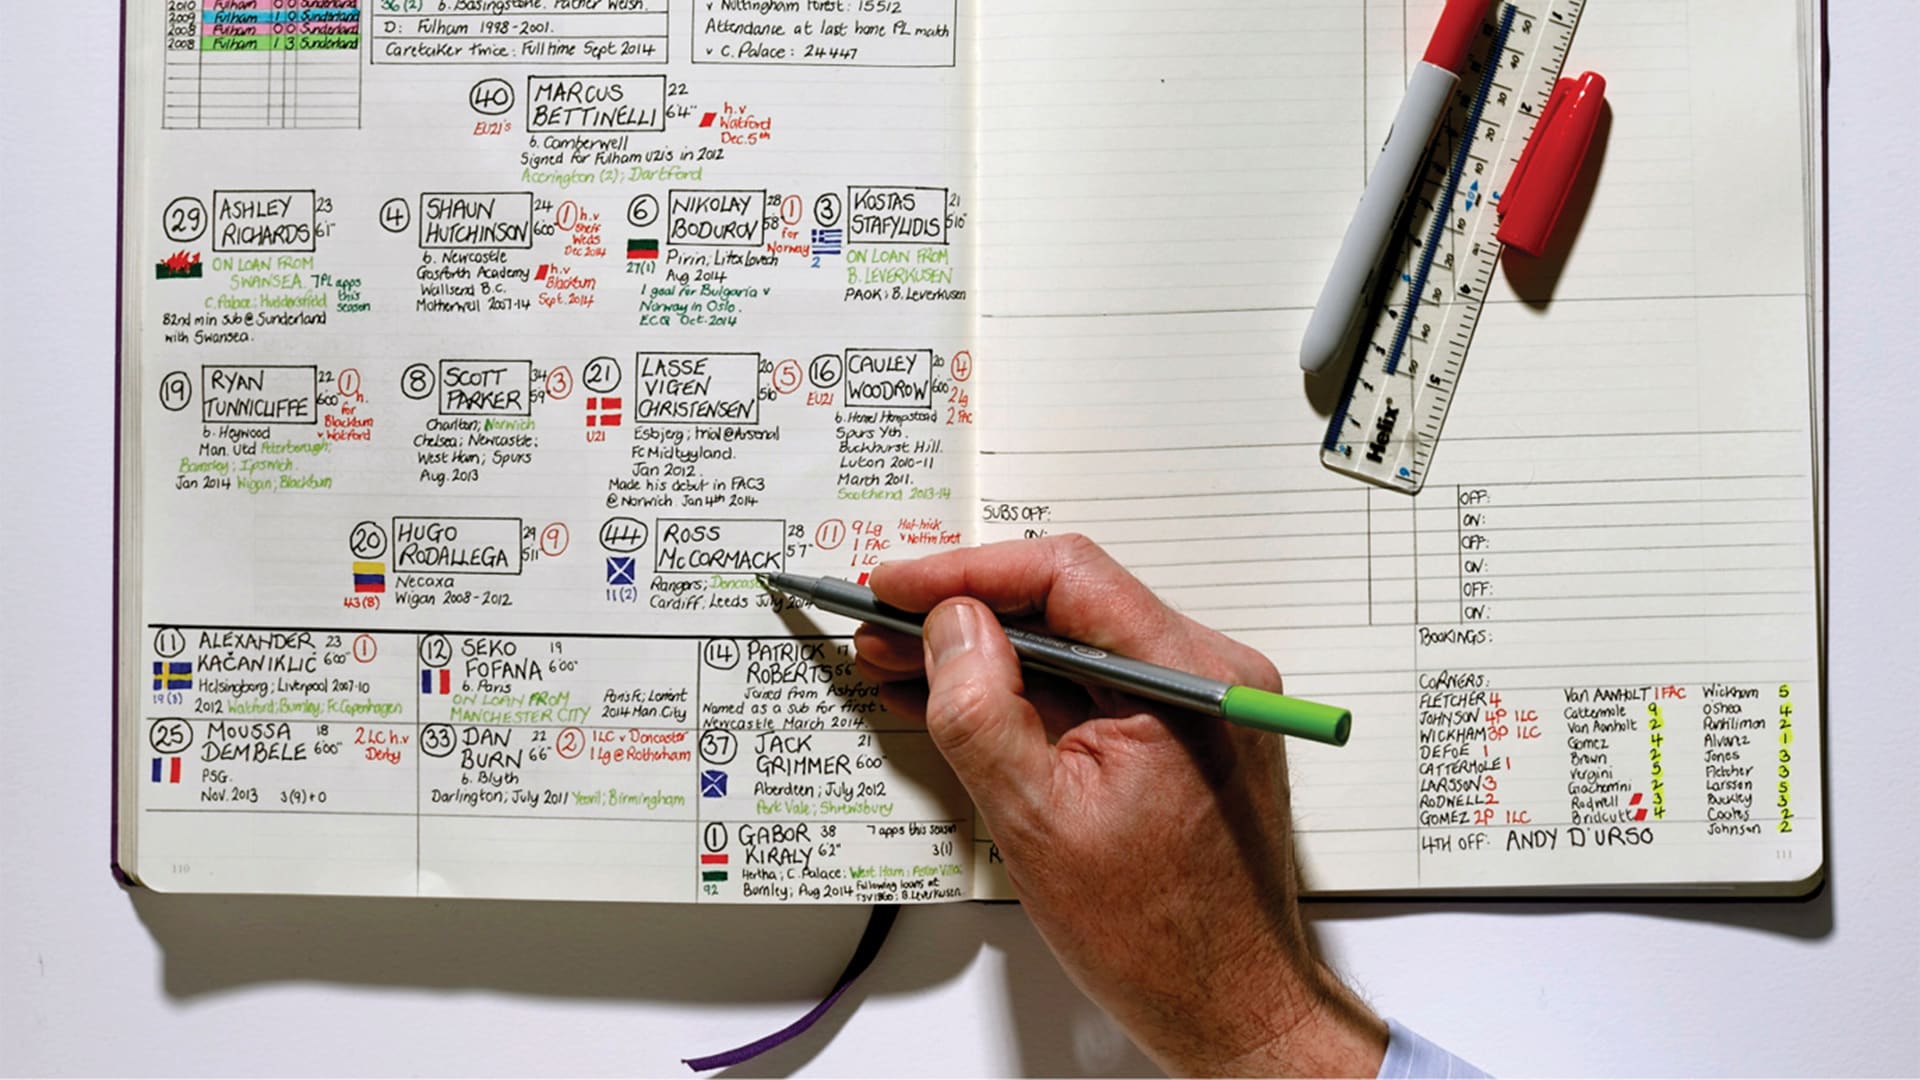 2010 Fulham 0 0 Sunderland
2009 Fulham 1 0 Sunderland
2008 Fulham 0 0 Sunderland
2008 Fulham 1 3 Sunderland
36 (2) b. Basingstoke. Father Welsh.
D: Fulham 1998-2001.
Caretaker twice: Full time Sept 2014
v Nottingham Forest: 15512
Attendance at last home PL match
v C. Palace: 24447
40 MARCUS BETTINELLI 22 6'4"
EU21's
h.v Watford Dec. 5th
b. Camberwell
Signed for Fulham U21s in 2012
Accrington (2); Dartford
29 ASHLEY RICHARDS 23 6'1"
ON LOAN FROM
SWANSEA. 7PL apps this season
C. Palace; Huddersfield
82nd min sub @ Sunderland
with Swansea.
4 SHAUN HUTCHINSON 24 600"
1 h.v Sheff Weds Dec 2014
b. Newcastle
Gosforth Academy
Wallsend B.C.
Motherwell 2007-14
h.v Blackburn Sept. 2014
6 NIKOLAY BODUROV 28 58"
1 for Norway
27(1)
Pirin; Litex Lovech
Aug 2014
1 goal for Bulgaria v
Norway in Oslo.
ECQ Oct. 2014
3 KOSTAS STAFYLIDIS 21 510"
2
ON LOAN FROM
B. LEVERKUSEN
PAOK; B. Leverkusen
19 RYAN TUNNICLIFFE 22 600"
1 h. for Blackburn v Watford
b. Heywood
Man. Utd Peterborough;
Barnsley; Ipswich.
Jan 2014 Wigan; Blackburn
8 SCOTT PARKER 34 59"
3
Charlton; Norwich
Chelsea; Newcastle;
West Ham; Spurs
Aug. 2013
21 LASSE VIGEN CHRISTENSEN 20 510"
5
U21
Esbjerg; trial @ Arsenal
FC Midtjyland.
Jan 2012.
Made his debut in FAC3
@ Norwich. Jan 4th 2014
16 CAULEY WOODROW 20 600"
EU21
4 2 Lg 2 FAC
b. Hemel Hempstead
Spurs Yth.
Buckhurst Hill.
Luton 2010-11
March 2011.
Southend 2013-14
20 HUGO RODALLEGA 29 511"
9
43(8)
Necaxa
Wigan 2008-2012
44 ROSS McCORMACK 28 57"
11 9 Lg 1 FAC 1 LC
Hat-trick v Nottm Forest
11(2)
Rangers;
Cardiff; Leeds July 2014
11 ALEXANDER KAČANIKLIĆ 23 600"
1
19(3)
Helsingborg; Liverpool 2007-10
2012 Watford; Burnley; Fc Copenhagen
12 SEKO FOFANA 19 6'00"
b. Paris
ON LOAN FROM
MANCHESTER CITY
Paris Fc; Lorient
2014 Man. City
14 PATRICK ROBERTS 17
Joined from Ashford
Named as a sub for first
Newcastle March 2014
25 MOUSSA DEMBELE 18 600"
2 LC h.v Derby
PSG.
Nov. 2013 3(9)+0
33 DAN BURN 22 66"
2 1LC v Doncaster
1 Lg @ Rotherham
b. Blyth
Darlington; July 2011 Yeovil; Birmingham
37 JACK GRIMMER 21 600"
Aberdeen; July 2012
Port Vale; Shrewsbury
1 GABOR KIRALY 38 62"
7 apps this season
3(1)
92
Hertha; C. Palace; West Ham; Aston Villa;
Burnley; Aug 2014 Following loans at
TSV 1860; B. Leverkusen
110
Helix
SUBS OFF:
ON:
OFF:
ON:
OFF:
ON:
OFF:
ON:
BOOKINGS:
CORNERS:
FLETCHER 4
JOHNSON 4P 1LC
WICKHAM 3P 1LC
DEFOE 1
CATTERMOLE 1
LARSSON 3
RODWELL 2
GOMEZ 2P 1LC
VAN AANHOLT 1 FAC
Cattermole 9
Van Aanholt 2
Gomez 4
Brown 2
Vergini 5
Giaccherini 2
Rodwell 3
Bridcutt 4
Wickham 5
O'Shea 4
Pantilimon 2
Alvarez 1
Jones 3
Fletcher 3
Larsson 5
Buckley 3
Coates 2
Johnson 2
4TH OFF: ANDY D'URSO
111